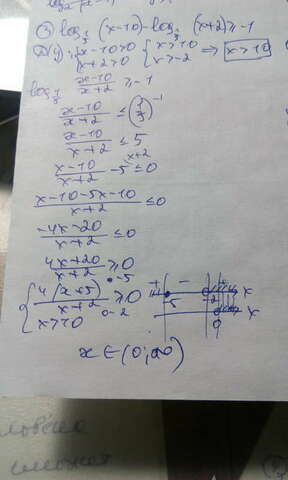 ③ log_{1/5} (x-10) - log_{1/5} (x+2) ≥ -1
{ x-10>0 { x>10 ⇒ x>10
x+2>0 x>-2
log_{1/5} \frac{x-10}{x+2} ≥ -1
\frac{x-10}{x+2} ≤ (\frac{1}{5})^{-1}
\frac{x-10}{x+2} ≤ 5
\frac{x-10}{x+2} - 5^{x+2} ≤ 0
\frac{x-10-5x-10}{x+2} ≤ 0
\frac{-4x-20}{x+2} ≤ 0
\frac{4x+20}{x+2} ≥ 0
{ \frac{4(x+5)}{x+2} ≥ 0 • -5 ∘ -2
x>10
+ - + x
-5 -2
x
0
x ∈ (0; ∞)
можете